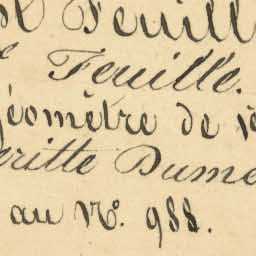 Feuill
Feuille.
géomètre de 1e
eritte Dume
au N°. 988.